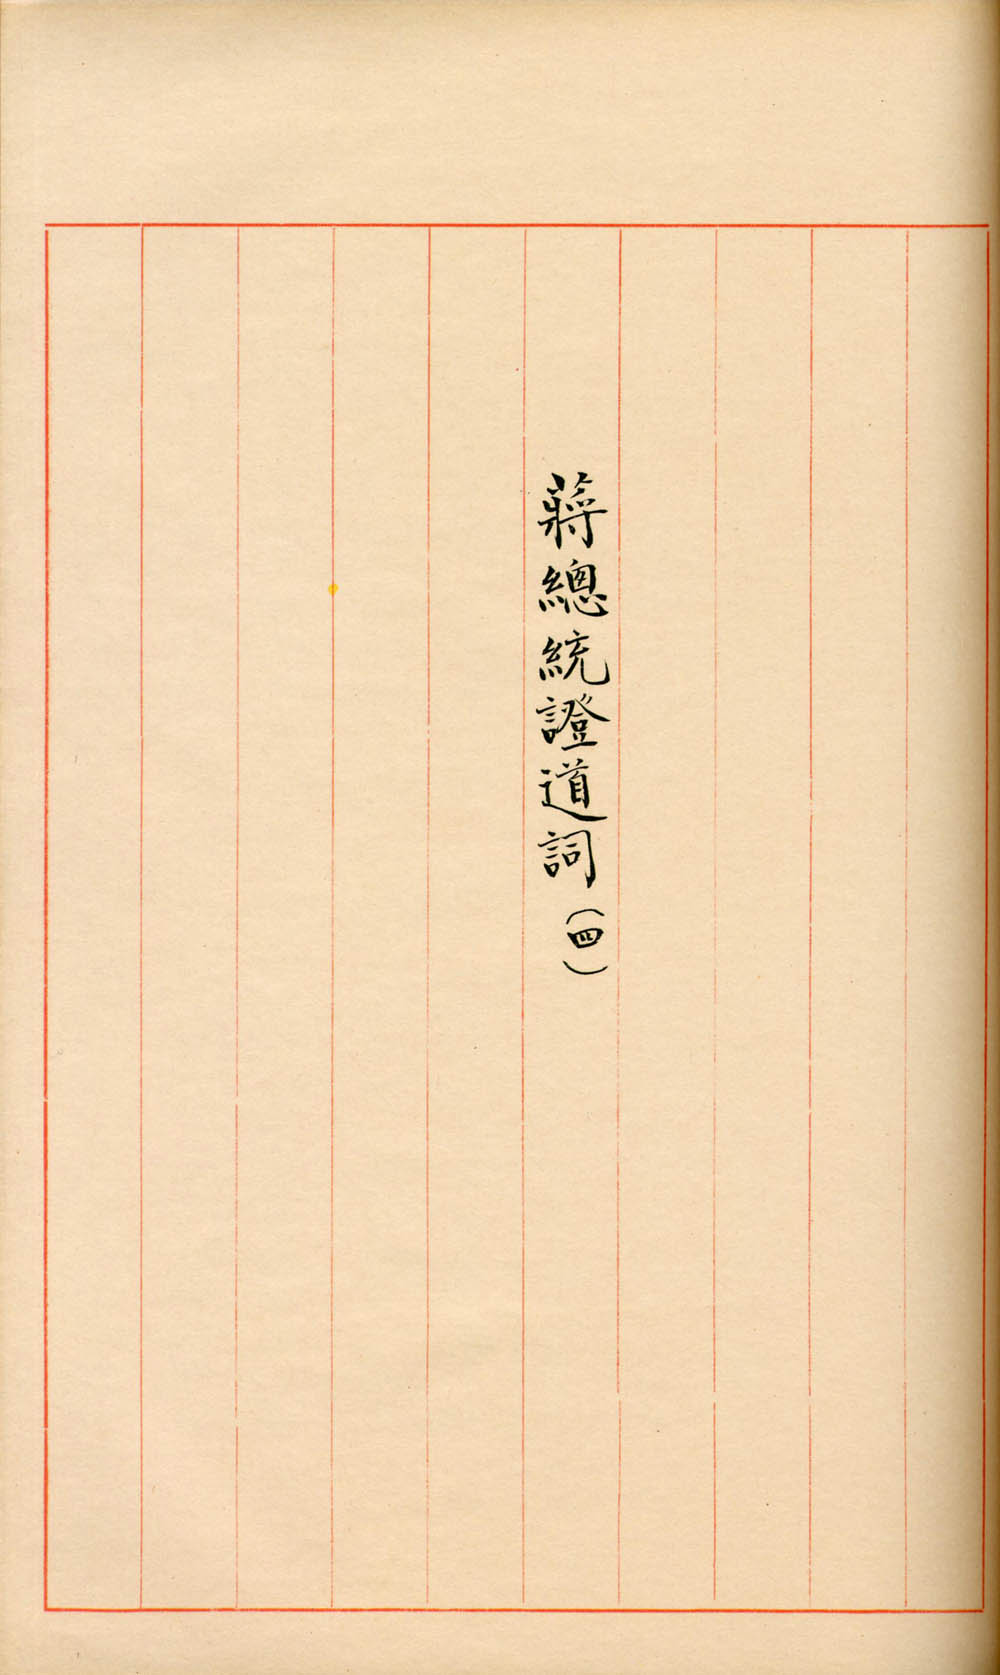 蔣總統證道詞（四）